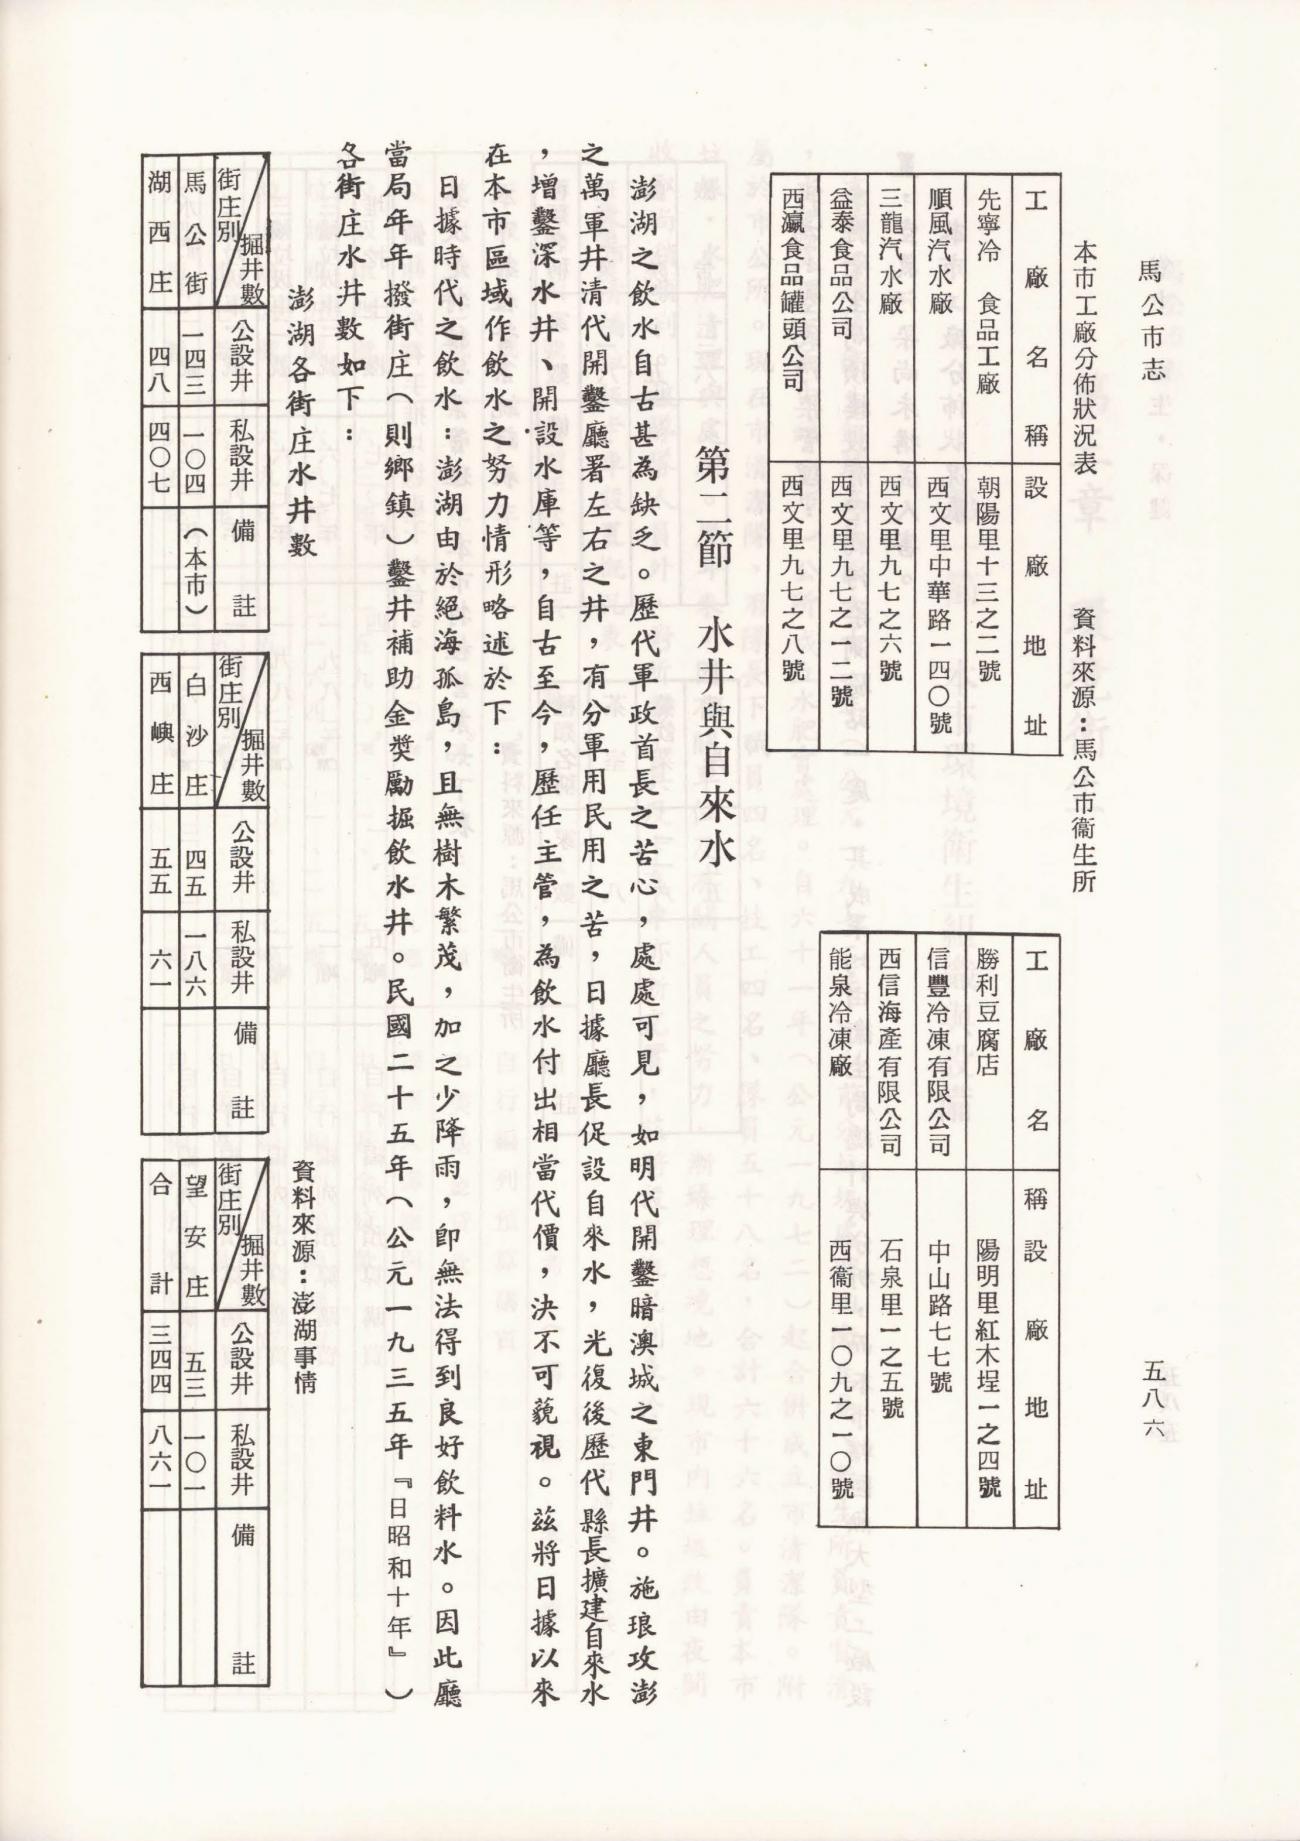 馬公市志
五八六
本市工廠分佈狀況表
資料來源：馬公市衞生所
工廠名稱 設廠地址
先寧冷　食品工廠 朝陽里十三之二號
順風汽水廠 西文里中華路一四〇號
三龍汽水廠 西文里九七之六號
益泰食品公司 西文里九七之一二號
西瀛食品罐頭公司 西文里九七之八號
工廠名稱 設廠地址
勝利豆腐店 陽明里紅木埕一之四號
信豐冷凍有限公司 中山路七七號
西信海產有限公司 石泉里一之五號
能泉冷凍廠 西衞里一〇九之一〇號
第二節　水井與自來水
澎湖之飲水自古甚為缺乏。歷代軍政首長之苦心，處處可見，如明代開鑿暗澳城之東門井。施琅攻澎
之萬軍井清代開鑿廳署左右之井，有分軍用民用之苦，日據廳長促設自來水，光復後歷代縣長擴建自來水
，增鑿深水井、開設水庫等，自古至今，歷任主管，為飲水付出相當代價，決不可藐視。茲將日據以來
在本市區域作飲水之努力情形略述於下：
日據時代之飲水：澎湖由於絕海孤島，且無樹木繁茂，加之少降雨，卽無法得到良好飲料水。因此廳
當局年年撥街庄（則鄉鎮）鑿井補助金獎勵掘飲水井。民國二十五年（公元一九三五年『日昭和十年』）
各街庄水井數如下：
澎湖各街庄水井數
資料來源：澎湖事情
街庄別 掘井數 公設井 私設井 備註
馬公街 一四三 一〇四 （本市）
湖西庄 四八 四〇七
街庄別 掘井數 公設井 私設井 備註
白沙庄 四五 一八六
西嶼庄 五五 六一
街庄別 掘井數 公設井 私設井 備註
望安庄 五三 一〇一
合計 三四四 八六一